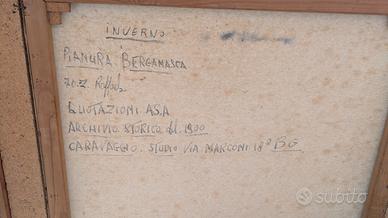 INVERNO
PIANURA BERGAMASCA
70X
QUOTAZIONI ASA
ARCHIVIO STORICO del 1900
CARAVAGGIO. STUDIO VIA MARCONI 18° BG
subito